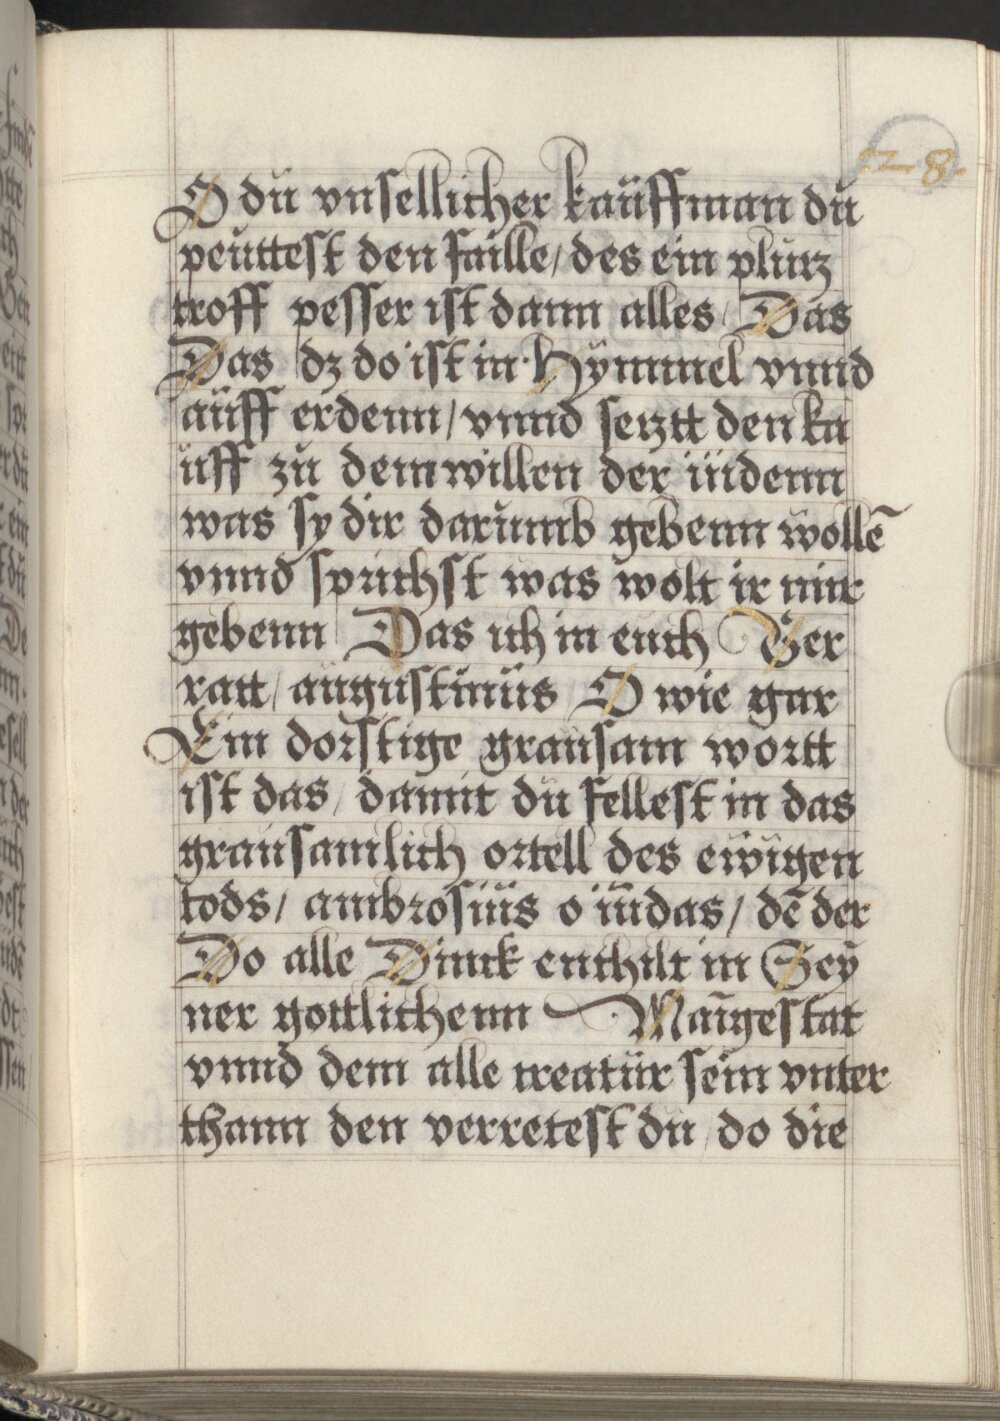 28.
O dü vnsellicher kaüffman dü
peüttest den faille/ des ein plütz
troff pesser ist dann alles/ Das
Das dz do ist in Hÿmmel vnnd
aüff erdenn/ vnnd setztt den ka
üff zü dem willen der iüdenn
was sy dir darümb gebenn wöllē
vnnd sprichst was wölt ir mir
gebenn Das ich in eüch Ver
ratt/ aügüstinüs/ O wie gar
Ein dorstige graüsam wortt
ist das/ damit dü fellest in das
graüsamlich ortell des ewigen
tods/ ambrosiüs o iüdas/ dē der
Do alle Dinck enthilt in Seÿ
ner gottlichenn Maÿestat
vnnd dem alle creatür sein vnter
thann den verretest dü/ do die